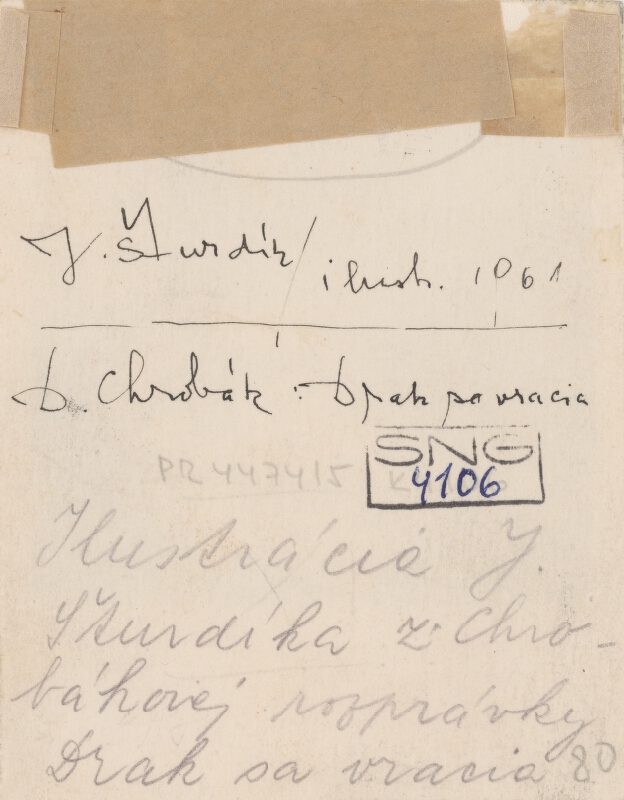 J. Šturdík / ilustr. 1961
D. Chrobák: Drak sa vracia
SNG
PR 4474/5
4106
Ilustrácia J.
Šturdíka z Chro-
bákovej rozprávky
Drak sa vracia 80